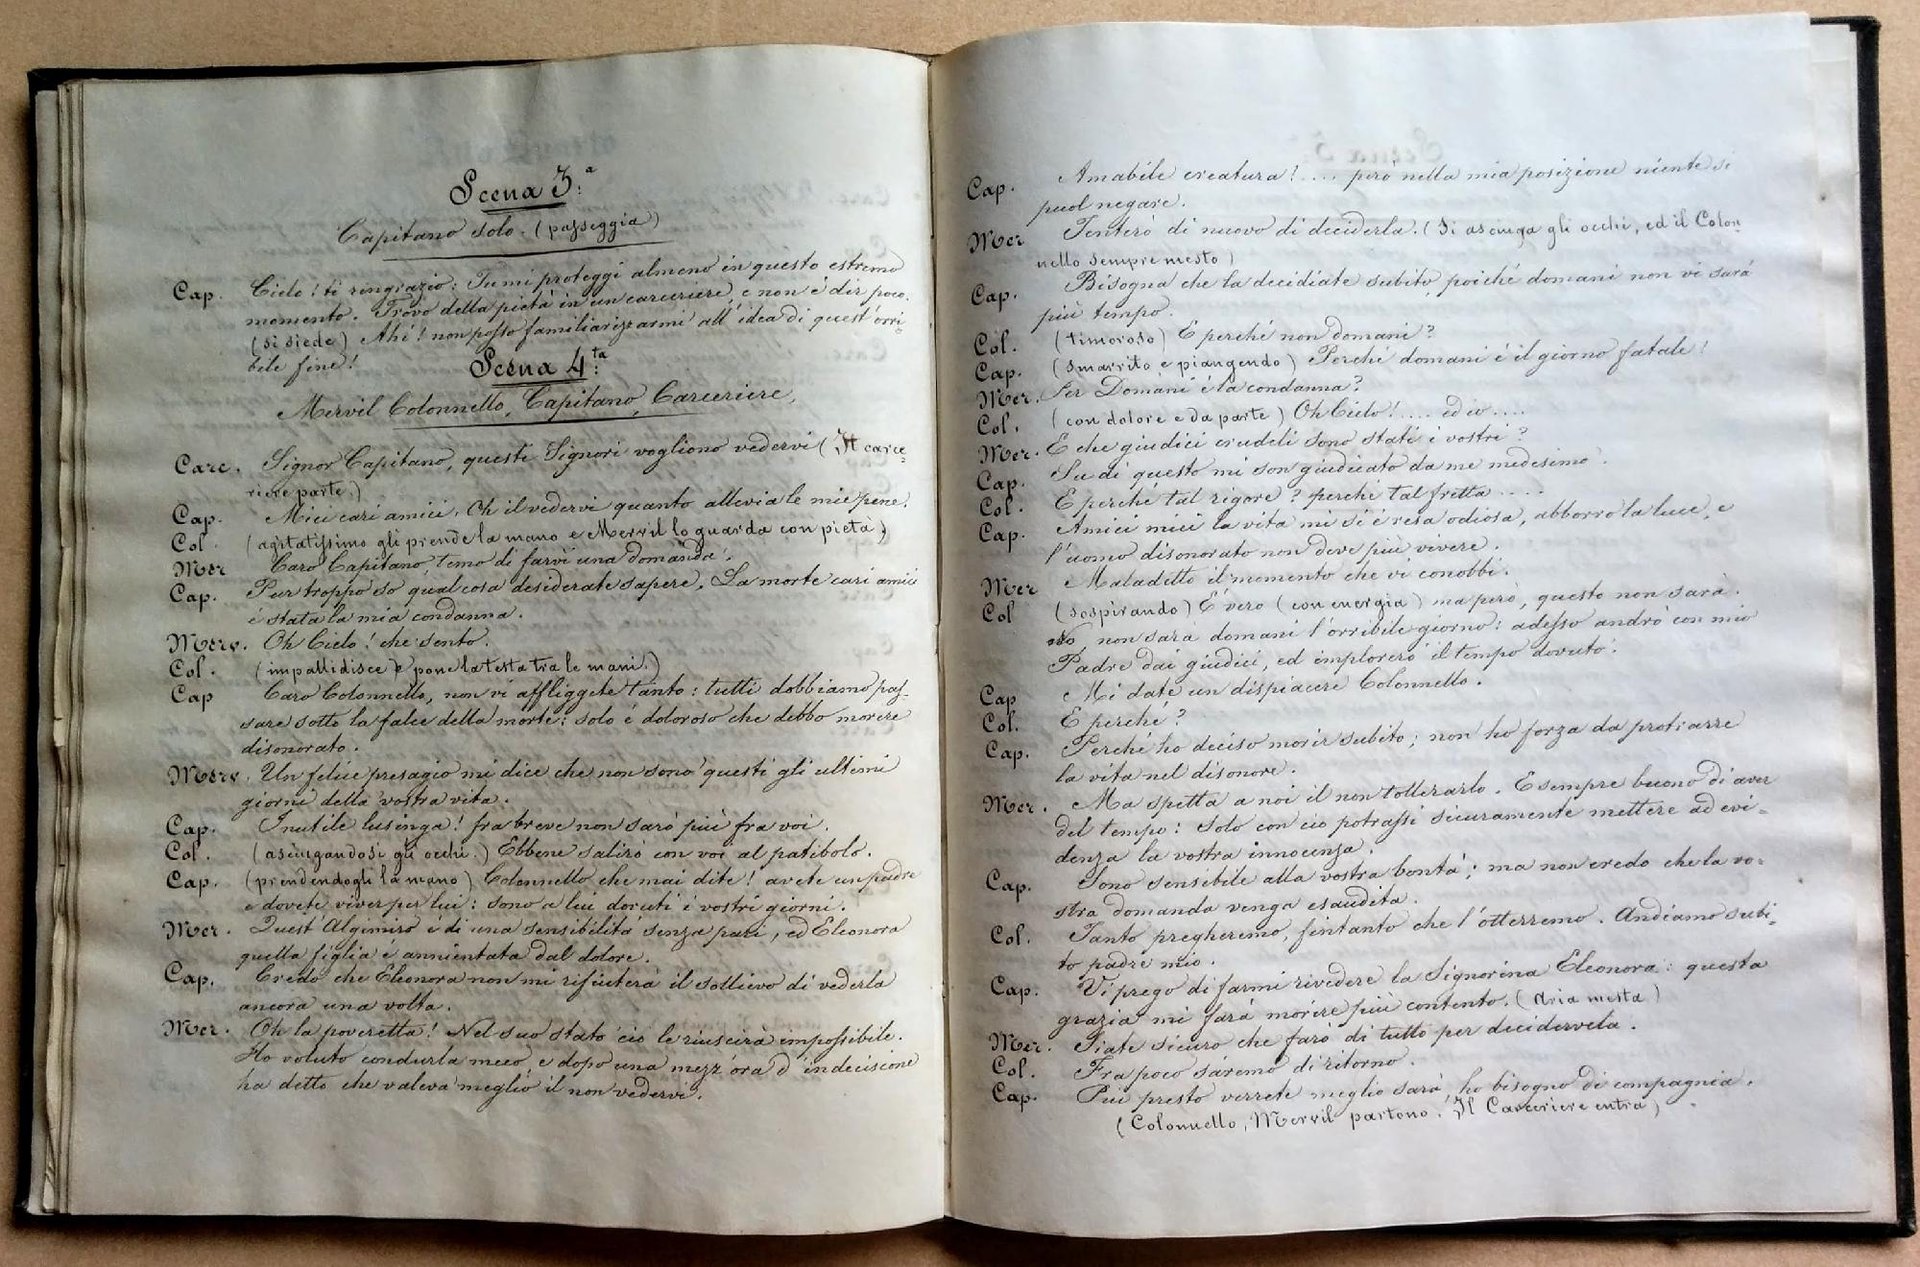 Scena 3.ª
Capitano solo. (passeggia)
Cap. Cielo! ti ringrazio: Tu mi proteggi almeno in questo estremo
momento. Trovo della pietà in un carceriere, e non è dir poco.
(si siede) Ahi! non posso familiarizzarmi all'idea di quest'orri-
bile fine!
Scena 4.ta
Mervil Colonnello, Capitano, Carceriere,
Carc. Signor Capitano, questi Signori vogliono vedervi (Il carce-
riere parte.)
Cap. Miei cari amici, Oh il vedervi quanto allevia le mie pene.
Col. (agitatissimo gli prende la mano e Mervil lo guarda con pietà)
Mer Caro Capitano, temo di farvi una domanda.
Cap. Pur troppo so qual cosa desiderate sapere. La morte cari amici
è stata la mia condanna.
Merv. Oh Cielo! che sento.
Col. (impallidisce e pone la testa tra le mani.)
Cap Caro Colonnello, non vi affliggete tanto: tutti dobbiamo pas-
sare sotto la falce della morte: solo è doloroso che debbo morire
disonorato.
Merv. Un felice presagio mi dice che non sono questi gli ultimi
giorni della vostra vita.
Cap. Inutile lusinga! fra breve non sarò più fra voi.
Col. (asciugandosi gli occhi.) Ebbene salirò con voi al patibolo.
Cap. (prendendogli la mano) Colonnello che mai dite! avete un padre
e dovete viver per lui: sono a lui dovuti i vostri giorni.
Mer. Quest'Algimiro è di una sensibilità senza pari, ed Eleonora
quella figlia è annientata dal dolore.
Cap. Credo che Eleonora non mi rifiuterà il sollievo di vederla
ancora una volta.
Mer. Oh la poveretta! Nel suo stato ciò le riuscirà impossibile.
Ho voluto condurla meco, e dopo una mezz'ora d'indecisione
ha detto che valeva meglio il non vedervi.
Cap. Amabile creatura! .... però nella mia posizione niente si
puol negare.
Mer Tenterò di nuovo di deciderla. (Si asciuga gli occhi, ed il Colon-
nello sempre mesto)
Cap. Bisogna che la decidiate subito, poiché domani non vi sarà
più tempo.
Col. (timoroso) E perché non domani?
Cap. (smarrito e piangendo) Perché domani è il giorno fatale!
Mer. Per Domani è la condanna?
Col. (con dolore e da parte) Oh Cielo! .... ed io ....
Mer. E che giudici crudeli sono stati i vostri?
Cap. Su di questo mi son giudicato da me medesimo.
Col. E perché tal rigore? perché tal fretta ....
Cap. Amici miei la vita mi si è resa odiosa, abborro la luce, e
l'uomo disonorato non deve più vivere.
Mer Maladetto il momento che vi conobbi.
Col (sospirando) È vero (con energia) ma però, questo non sarà.
No non sarà domani l'orribile giorno: adesso andrò con mio
Padre dai giudici, ed implorerò il tempo dovuto.
Cap Mi date un dispiacere Colonnello.
Col. E perché?
Cap. Perché ho deciso morir subito; non ho forza da protrarre
la vita nel disonore.
Mer. Ma spetta a noi il non tollerarlo. È sempre buono di aver
del tempo: solo con ciò potrassi sicuramente mettere ad evi-
denza la vostra innocenza.
Cap. Sono sensibile alla vostra bontà; ma non credo che la vo-
stra domanda venga esaudita.
Col. Tanto pregheremo, fintanto che l'otterremo. Andiamo subi-
to padre mio.
Cap. Vi prego di farmi rivedere la Signorina Eleonora: questa
grazia mi farà morire più contento. (Aria mesta)
Mer. Siate sicuro che farò di tutto per decidervela.
Col. Fra poco saremo di ritorno.
Cap. Più presto verrete meglio sarà, ho bisogno di compagnia.
(Colonnello, Mervil partono. Il Carceriere entra)